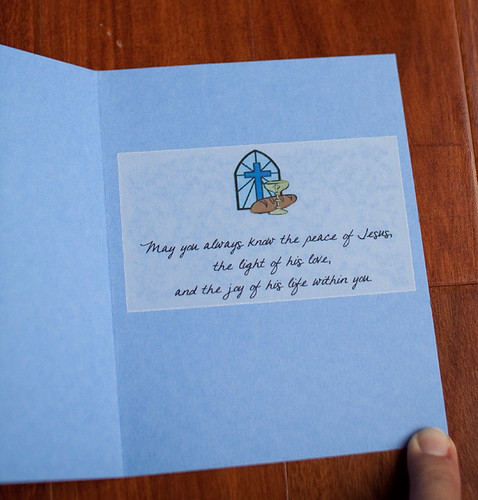 May you always know the peace of Jesus,
the light of his love,
and the joy of his life within you